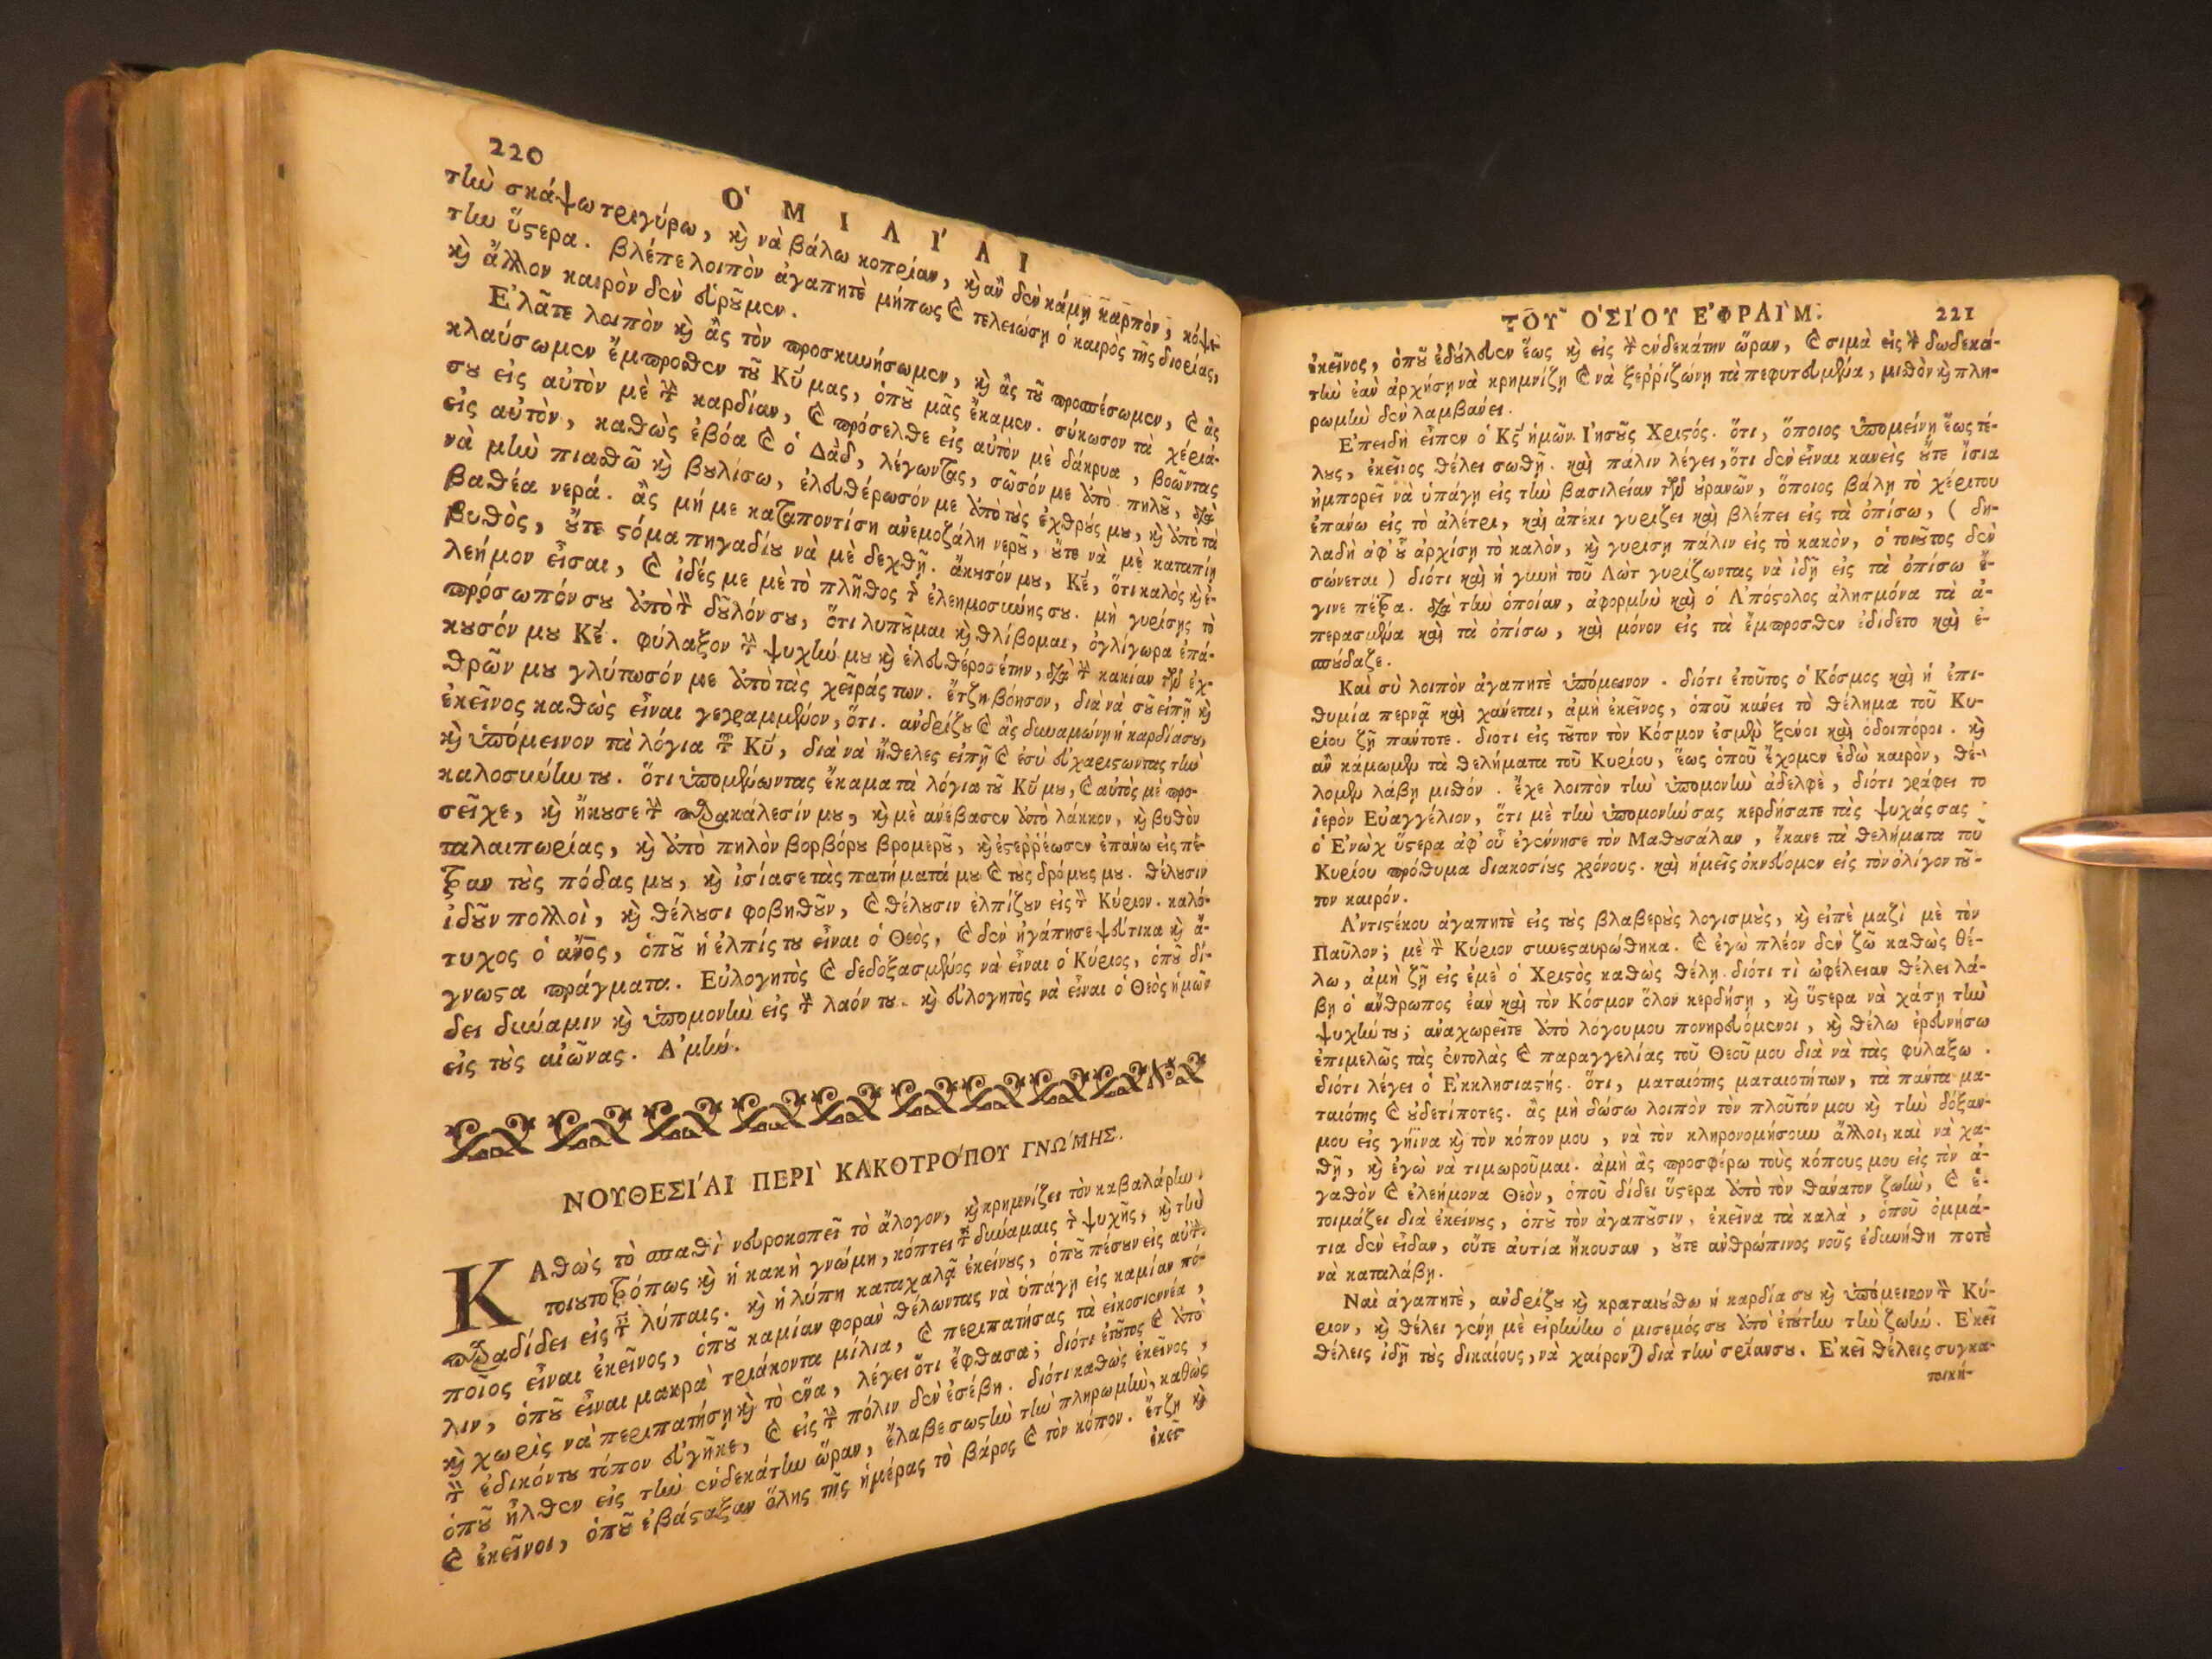 220
Ὁ Μ Ι Λ Ί Α Ι
τὴν σκάψω τριγύρω, καὶ νὰ βάλω κοπρίαν, καὶ ἂν δὲν κάμῃ καρπὸν, κόψε-
την ὕστερα. βλέπε λοιπὸν ἀγαπητὲ μήπως καὶ τελειώσῃ ὁ καιρὸς τῆς διορίας,
καὶ ἄλλον καιρὸν δὲν εὑροῦμεν.
Ἐλᾶτε λοιπὸν καὶ ἂς τὸν προσκυνήσωμεν, καὶ ἂς τοῦ προσπέσωμεν, καὶ ἂς
κλαύσωμεν ἔμπροσθεν τοῦ Κυ μας, ὁποῦ μᾶς ἔκαμεν. σύκωσον τὰ χέρια-
σου εἰς αὐτὸν μὲ τὴν καρδίαν, καὶ πρόσελθε εἰς αὐτὸν μὲ δάκρυα, βοῶντας
εἰς αὐτὸν, καθὼς ἐβόα καὶ ὁ Δαδ, λέγωντας, σῶσόν με ἀπὸ πηλοῦ, διὰ
νὰ μὴν πιασθῶ καὶ βουλίσω, ἐλευθέρωσόν με ἀπὸ τοὺς ἐχθρούς μου, καὶ ἀπὸ τὰ
βαθέα νερά. ἂς μή με καταποντίσῃ ἀνεμοζάλη νεροῦ, οὔτε νὰ μὲ καταπίῃ
βυθὸς, οὔτε στόμα πηγαδίου νὰ μὲ δεχθῇ. ἄκουσόν μου, Κε, ὅτι καλὸς καὶ ἐ-
λεήμον εἶσαι, καὶ ἰδές με μὲ τὸ πλῆθος τῆς ἐλεημοσύνης σου. μὴ γυρίσῃς τὸ
πρόσωπόν σου ἀπὸ τὸν δοῦλόν σου, ὅτι λυποῦμαι καὶ θλίβομαι, ὀγλίγωρα ἐπά-
κουσόν μου Κε. φύλαξον τὴν ψυχήν μου καὶ ἐλευθέροσέτην, διὰ τὴν κακίαν τῶν ἐχ-
θρῶν μου γλύτωσόν με ἀπὸ τὰς χεῖράς των. ἔτζη βόησον, διὰ νὰ σοῦ εἰπῇ καὶ
ἐκεῖνος καθὼς εἶναι γεγραμμένον, ὅτι. ἀνδρίζου καὶ ἂς δυναμώνῃ ἡ καρδία σου,
καὶ ὑπόμεινον τὰ λόγια τοῦ Κυ, διὰ νὰ ἤθελες εἰπῇ καὶ ἐσὺ εὐχαριστωντας τὴν
καλοσύνην του. ὅτι ὑπομένωντας ἔκαμα τὰ λόγια τοῦ Κυ μου, καὶ αὐτὸς μὲ προ-
σεῖχε, καὶ ἤκουσε τὴν παρακάλεσίν μου, καὶ μὲ ἀνέβασεν ἀπὸ λάκκον, καὶ βυθὸν
ταλαιπωρίας, καὶ ἀπὸ πηλὸν βορβόρου βρομεροῦ, καὶ ἐστερρέωσεν ἐπάνω εἰς πέ-
τραν τοὺς πόδας μου, καὶ ἰσίασε τὰς πατήματά μου καὶ τοὺς δρόμους μου. θέλουσιν
ἰδοῦν πολλοὶ, καὶ θέλουσι φοβηθοῦν, καὶ θέλουσιν ἐλπίζουν εἰς τὸν Κύριον. καλό-
τυχος ὁ ἄνος, ὁποῦ ἡ ἐλπίς του εἶναι ὁ Θεὸς, καὶ δὲν ἠγάπησε ψεύτικα καὶ ἄ-
γνωστα πράγματα. Εὐλογητὸς καὶ δεδοξασμένος νὰ εἶναι ὁ Κύριος, ὁποῦ δί-
δει δύναμιν καὶ ὑπομονὴν εἰς τὸν λαόν του. καὶ εὐλογητὸς νὰ εἶναι ὁ Θεὸς ἡμῶν
εἰς τοὺς αἰῶνας. Ἀμήν.
ΝΟΥΘΕΣΊΑΙ ΠΕΡῚ ΚΑΚΟΤΡΌΠΟΥ ΓΝΏΜΗΣ.
ΚΑθὼς τὸ σπαθὶ νευροκοπεῖ τὸ ἄλογον, καὶ κρημνίζει τὸν καβαλάρην.
τοιουτοτρόπως καὶ ἡ κακὴ γνώμη, κόπτει ταῖς δυνάμαις τῆς ψυχῆς, καὶ τὴν
παραδίδει εἰς ταῖς λύπαις. καὶ ἡ λύπη καταχαλᾷ ἐκείνους, ὁποῦ πέσουν εἰς αὐτ.
ποῖος εἶναι ἐκεῖνος, ὁποῦ καμίαν φορὰν θέλωντας νὰ ὑπάγῃ εἰς καμίαν πό-
λιν, ὁποῦ εἶναι μακρὰ τριάκοντα μίλια, καὶ περιπατήσας τὰ εἰκοσιεννέα,
καὶ χωρὶς νὰ περιπατήσῃ καὶ τὸ ἕνα, λέγει ὅτι ἔφθασα; διότι ἐτοῦτος καὶ ἀπὸ
τὸν ἐδικόντου τόπον εὐγῆκε, καὶ εἰς τὴν πόλιν δὲν ἐσέβη. διότι καθὼς ἐκεῖνος,
ὁποῦ ἦλθεν εἰς τὴν ἑνδεκάτην ὥραν, ἔλαβε σωστὴν τὴν πληρωμὴν, καθὼς
καὶ ἐκεῖνοι, ὁποῦ ἐβάσταξαν ὅλης τῆς ἡμέρας τὸ βάρος καὶ τὸν κόπον. ἔτζη καὶ
ἐκεῖ-
ΤΟΥ͂ ὉΣΊΟΥ ἘΦΡΑῚΜ. 221
ἐκεῖνος, ὁποῦ ἐδούλευεν ἕως καὶ εἰς τὴν ἑνδεκάτην ὥραν, καὶ σιμὰ εἰς τὴν δωδεκά-
την ἐὰν ἀρχήσῃ νὰ κρημνίζῃ καὶ νὰ ξερριζώνῃ τὰ πεφυτευμένα, μισθὸν καὶ πλη-
ρωμὴν δὲν λαμβάνει.
Ἐπειδὴ εἶπεν ὁ Κς ἡμῶν Ἰησοῦς Χριστός. ὅτι, ὅποιος ὑπομείνῃ ἕως τέ-
λους, ἐκεῖνος θέλει σωθῇ. καὶ πάλιν λέγει, ὅτι δὲν εἶναι κανεὶς οὔτε ἴσια
ἠμπορεῖ νὰ ὑπάγῃ εἰς τὴν βασιλείαν τῶν οὐρανῶν, ὅποιος βάλῃ τὸ χέριτου
ἐπάνω εἰς τὸ ἀλέτρι, καὶ ἀπέκι γυρίζει καὶ βλέπει εἰς τὰ ὀπίσω, ( δη-
λαδὴ ἀφ' οὗ ἀρχίσῃ τὸ καλὸν, καὶ γυρίσῃ πάλιν εἰς τὸ κακὸν, ὁ τοιοῦτος δὲν
σώνεται ) διότι καὶ ἡ γυνὴ τοῦ Λὼτ γυρίζωντας νὰ ἰδῇ εἰς τὰ ὀπίσω ἔ-
γινε πέτρα. διὰ τὴν ὁποίαν, ἀφορμὴν καὶ ὁ Ἀπόστολος ἀλησμόνα τὰ ἀ-
περασμένα καὶ τὰ ὀπίσω, καὶ μόνον εἰς τὰ ἔμπροσθεν ἐδίδετο καὶ ἐ-
σπούδαζε.
Καὶ σὺ λοιπὸν ἀγαπητὲ ὑπόμεινον. διότι ἐτοῦτος ὁ Κόσμος καὶ ἡ ἐπι-
θυμία περνᾷ καὶ χάνεται, ἀμὴ ἐκεῖνος, ὁποῦ κάνει τὸ θέλημα τοῦ Κυ-
ρίου ζῇ πάντοτε. διοτι εἰς τοῦτον τὸν Κόσμον ἐσμὲν ξένοι καὶ ὁδοιπόροι. καὶ
ἂν κάμωμεν τὰ θελήματα τοῦ Κυρίου, ἕως ὁποῦ ἔχομεν ἐδὼ καιρὸν, θέ-
λομεν λάβῃ μισθόν. ἔχε λοιπὸν τὴν ὑπομονὴν ἀδελφὲ, διότι γράφει το
ἱερὸν Εὐαγγέλιον, ὅτι μὲ τὴν ὑπομονήν σας κερδήσατε τὰς ψυχάς σας
ὁ Ἐνὼχ ὕστερα ἀφ' οὗ ἐγέννησε τὸν Μαθουσάλαν, ἔκανε τὰ θελήματα τοῦ
Κυρίου πρόθυμα διακοσίους χρόνους. καὶ ἡμεῖς ὀκνεύομεν εἰς τὸν ὀλίγον τοῦ-
τον καιρόν.
Ἀντιστέκου ἀγαπητὲ εἰς τοὺς βλαβεροὺς λογισμοὺς, καὶ εἰπὲ μαζὶ μὲ τὸν
Παῦλον; μὲ τὸν Κύριον συνεσταυρώθηκα. καὶ ἐγὼ πλέον δὲν ζῶ καθὼς θέ-
λω, ἀμὴ ζῇ εἰς ἐμὲ ὁ Χριστὸς καθὼς θέλῃ. διότι τί ὠφέλειαν θέλει λά-
βῃ ὁ ἄνθρωπος ἐὰν καὶ τὸν Κόσμον ὅλον κερδήσῃ, καὶ ὕστερα νὰ χάσῃ τὴν
ψυχήν του; ἀναχωρεῖτε ἀπὸ λόγουμου πονηρευόμενοι, καὶ θέλω ἐρευνήσω
ἐπιμελῶς τὰς ἐντολὰς καὶ παραγγελίας τοῦ Θεοῦ μου διὰ νὰ τὰς φυλάξω.
διότι λέγει ὁ Ἐκκλησιαστής. ὅτι, ματαιότης ματαιοτήτων, τὰ πάντα μα-
ταιότης καὶ οὐδετίποτες. ἂς μὴ δώσω λοιπὸν τὸν πλοῦτόν μου καὶ τὴν δόξαν-
μου εἰς γήϊνα καὶ τὸν κόπον μου, νὰ τὸν κληρονομήσουν ἄλλοι, καὶ νὰ χα-
θῇ, καὶ ἐγὼ νὰ τιμωροῦμαι. ἀμὴ ἂς προσφέρω τοὺς κόπους μου εἰς τὸν ἀ-
γαθὸν καὶ ἐλεήμονα Θεὸν, ὁποῦ δίδει ὕστερα ἀπὸ τὸν θάνατον ζωὴν, καὶ ἑ-
τοιμάζει διὰ ἐκείνους, ὁποῦ τὸν ἀγαποῦσιν, ἐκεῖνα τὰ καλὰ, ὁποῦ ὀμμά-
τια δὲν εἶδαν, οὔτε ἀυτία ἤκουσαν, οὔτε ἀνθρώπινος νοῦς ἐδυνήθη ποτὲ
νὰ καταλάβῃ.
Ναὶ ἀγαπητὲ, ἀνδρίζου καὶ κραταιούσθω ἡ καρδία σου καὶ ὑπόμεινον τὸν Κύ-
ριον, καὶ θέλει γένῃ μὲ εἰρήνην ὁ μισεμός σου ἀπὸ ἐτούτην τὴν ζωήν. Ἐκεῖ
θέλεις ἰδῇ τοὺς δικαίους, νὰ χαίρονται διὰ τὴν σρίανσου. Ἐκεῖ θέλεις συγκα-
τοική-